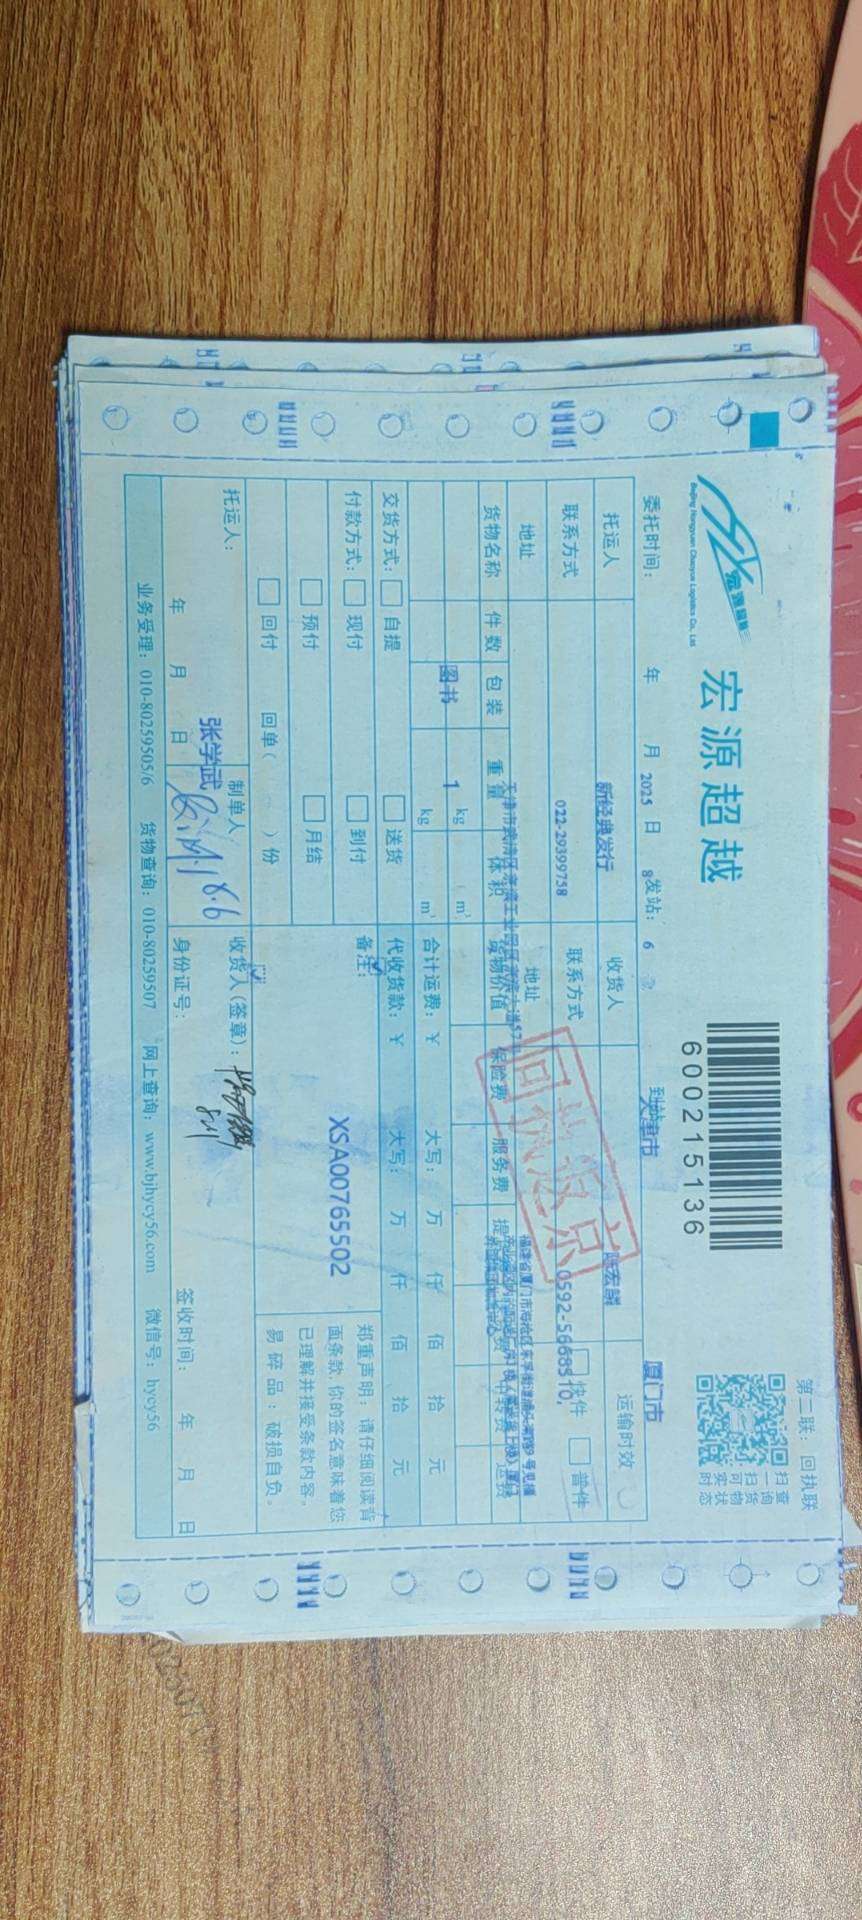 宏源超越
Beijing Hongyuan Chaoyue Logistics Co., Ltd
宏源超越
600215136
第二联：回执联
扫一扫可实时
查询货物状态
委托时间： 年 月 2025 日 8 发站： 6 到站： 天津市 厦门市
托运人 新经典发行 收货人 陈宏麟 运输时效
联系方式 022-29399758 联系方式 0592-5668510, 快件 普件
地址 地址
货物名称 件数 包装 重量 体积 货物价值 保险费 服务费
图书 1 kg m³
kg m³ 合计运费：￥ 大写： 万 仟 佰 拾 元
交货方式： 自提 送货 代收货款：￥ 大写： 万 仟 佰 拾 元
付款方式： 现付 到付 备注：
预付 月结 XSA00765502
回付 回单（ ）份
郑重声明：请仔细阅读背
面条款，你的签名意味着您
已理解并接受条款内容。
易碎品：破损自负。
回执返京
托运人： 制单人 收货人（签章）：
张学武
年 月 日 身份证号： 签收时间： 年 月 日
业务受理：010-80259505/6 货物查询：010-80259507 网上查询：www.bjhycy56.com 微信号：hycy56